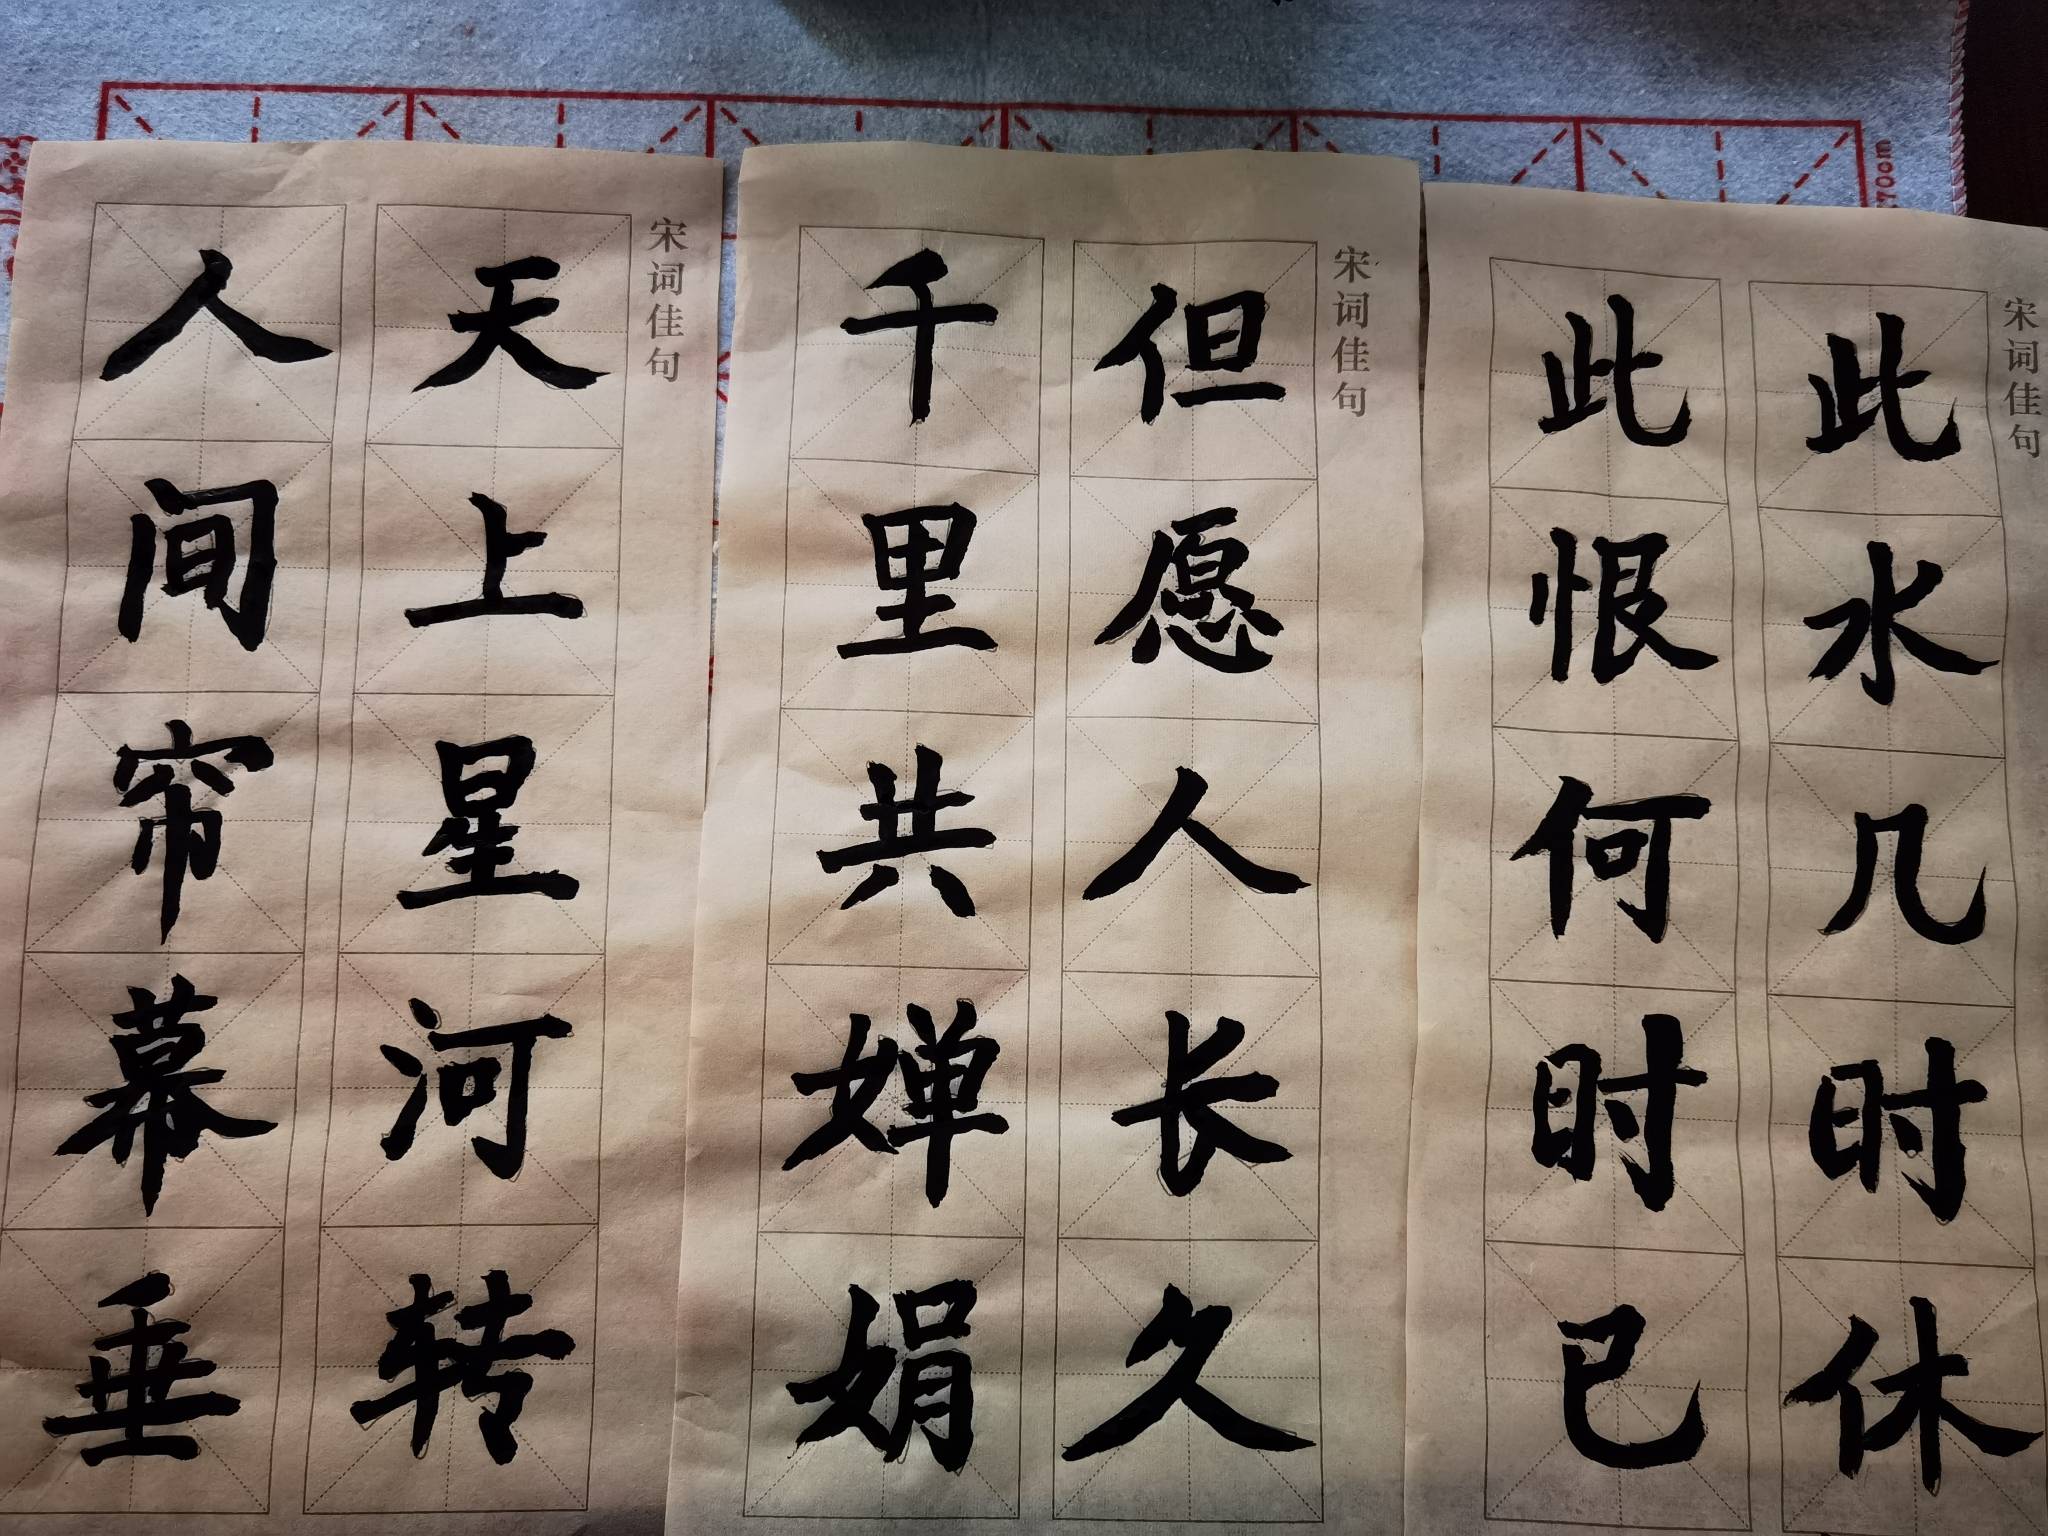 宋词佳句
此水几时休
此恨何时已
宋词佳句
但愿人长久
千里共婵娟
宋词佳句
天上星河转
人间帘幕垂